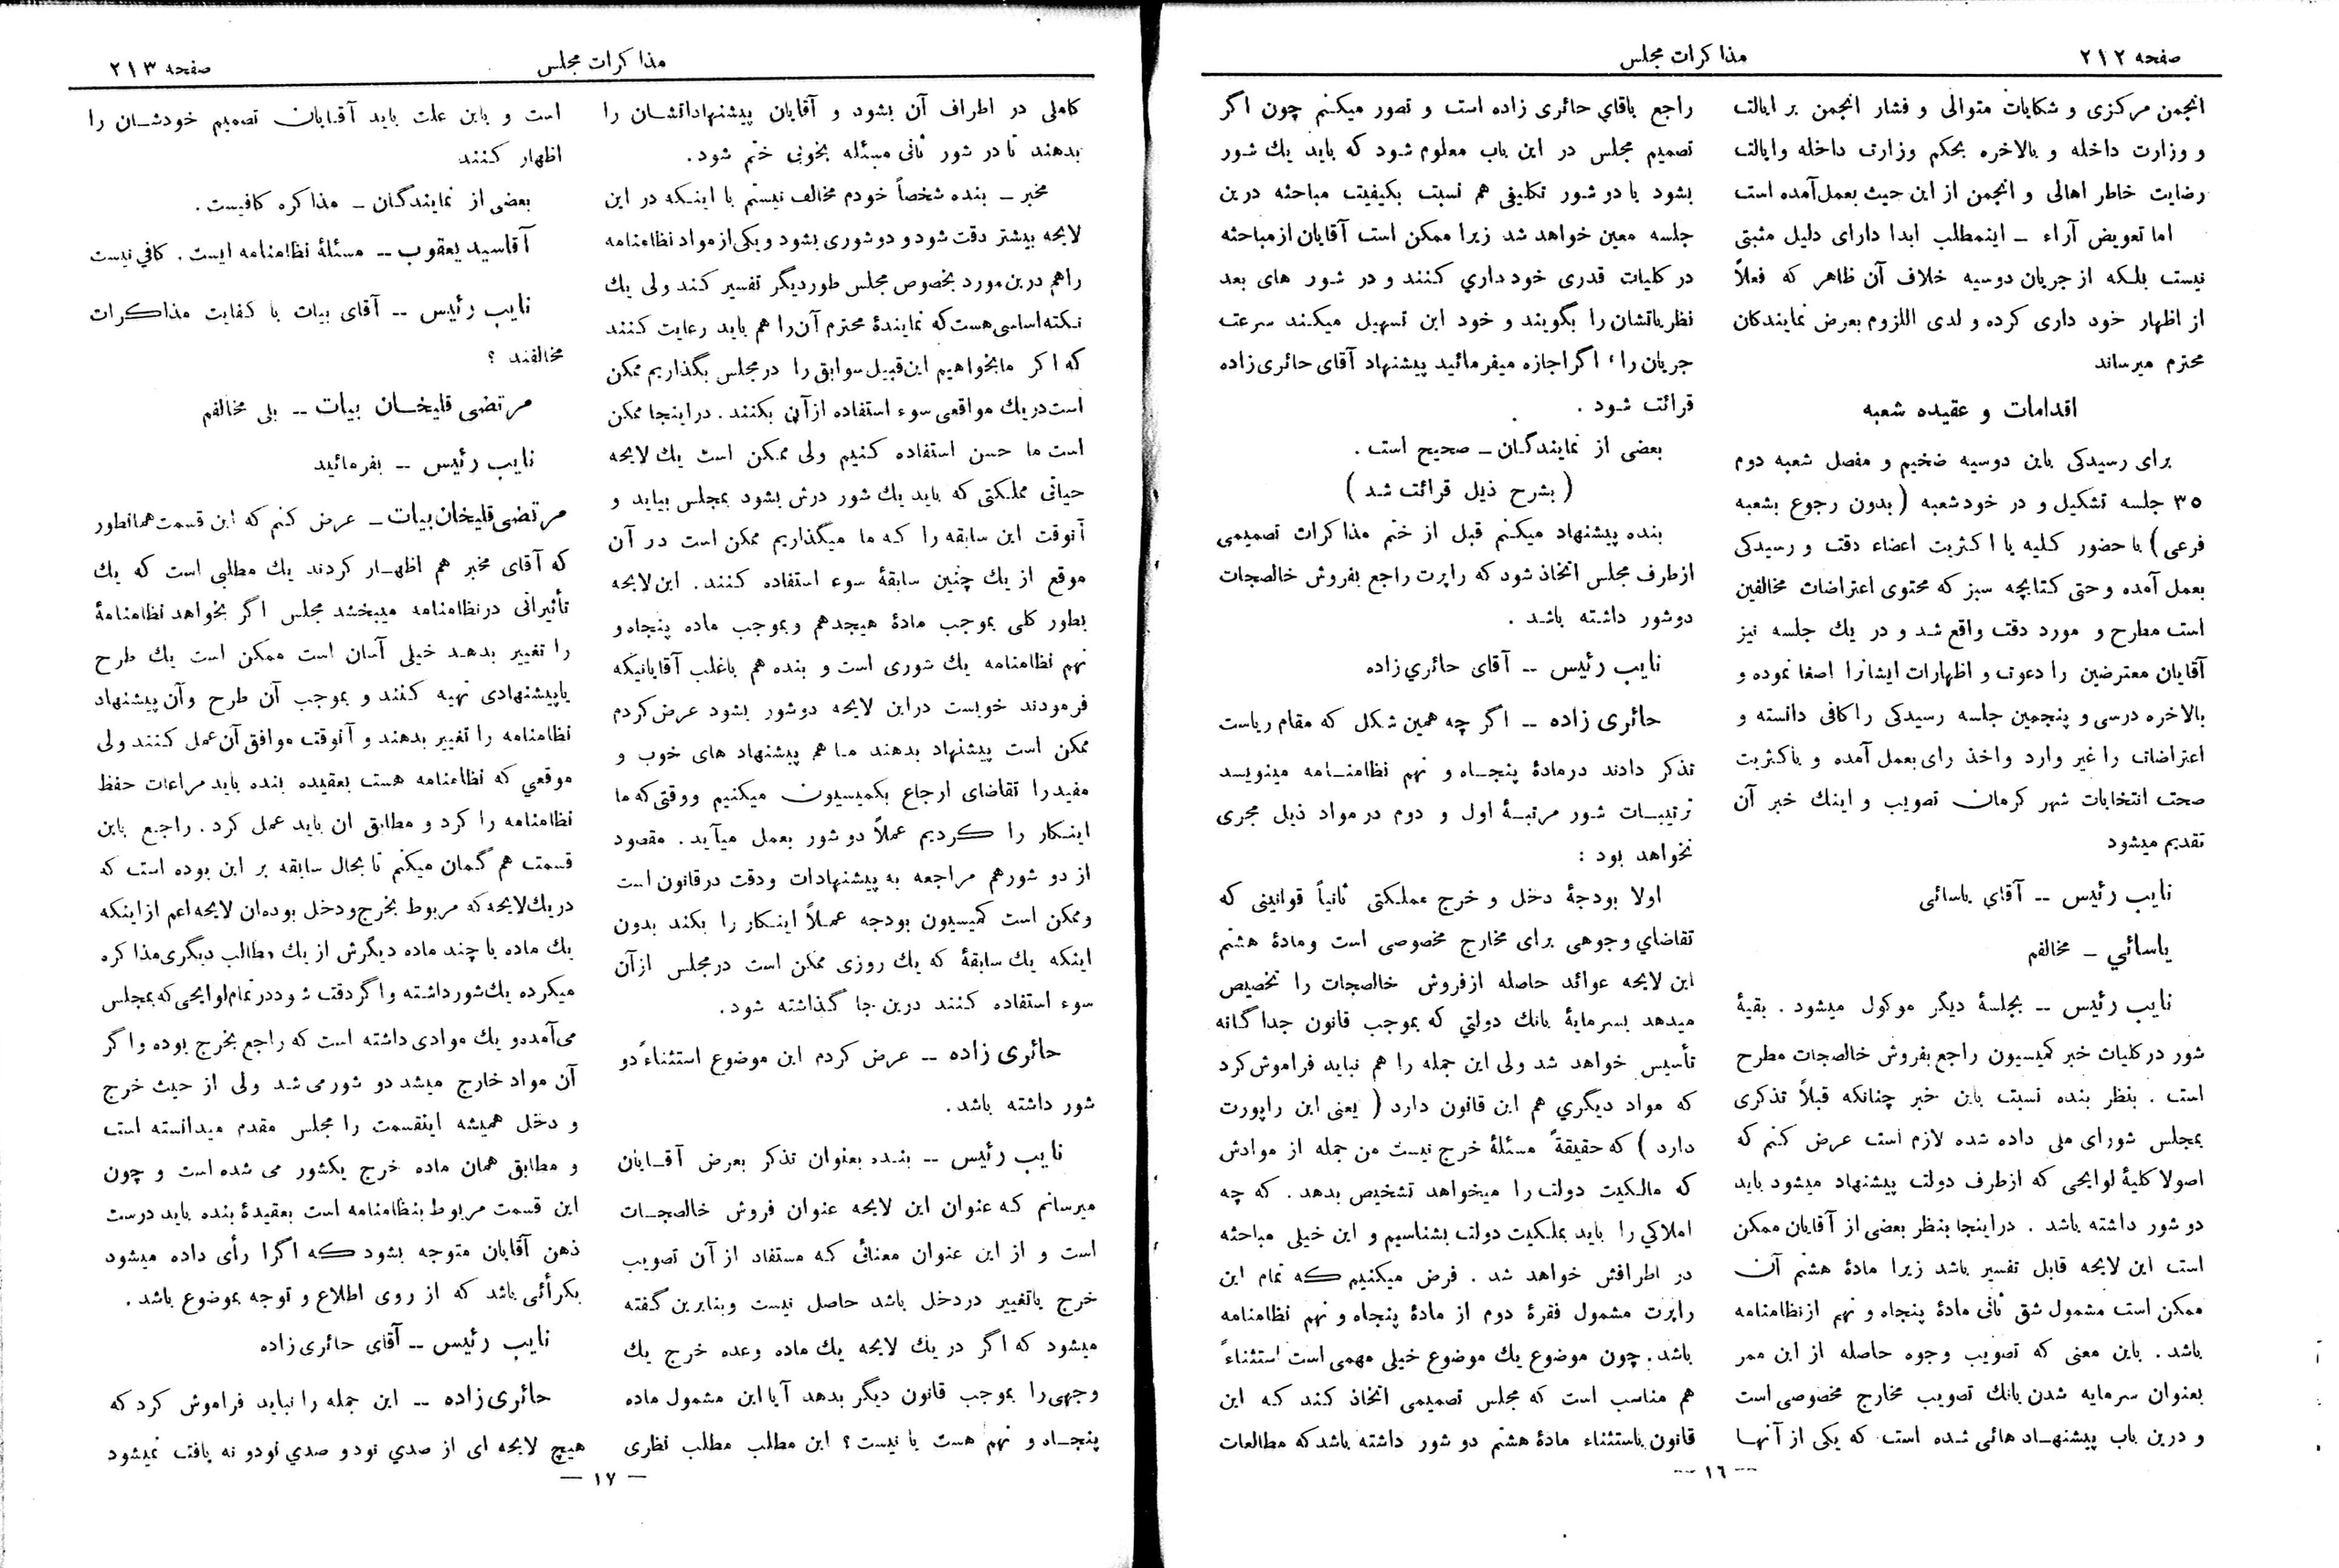 صفحه ۲۱۲
مذاکرات مجلس
انجمن مرکزی و شکایات متوالی و فشار انجمن بر ایالت
و وزارت داخله و بالاخره بحکم وزارت داخله وایالت
رضایت خاطر اهالی و انجمن از این حیث بعمل‌آمده است
اما تعویض آراء ــ اینمطلب ابدا دارای دلیل مثبتی
نیست بلکه از جریان دوسیه خلاف آن ظاهر که فعلاً
از اظهار خود داری کرده و لدی اللزوم بعرض نمایندکان
محترم میرساند
اقدامات و عقیده شعبه
برای رسیدکی باین دوسیه ضخیم و مفصل شعبه دوم
۳۵ جلسه تشکیل و در خود شعبه ( بدون رجوع بشعبه
فرعی ) با حضور کلیه یا اکثریت اعضاء دقت و رسیدکی
بعمل آمده و حتی کتابچه سبز که محتوی اعتراضات مخالفین
است مطرح و مورد دقت واقع شد و در یك جلسه نیز
آقایان معترضین را دعوت و اظهارات ایشانرا اصغا نموده و
بالاخره درسی و پنجمین جلسه رسیدکی را کافی دانسته و
اعتراضات را غیر وارد واخذ رای بعمل آمده و باکثریت
صحت انتخابات شهر کرمان تصویب و اینك خبر آن
تقدیم میشود
نایب رئیس ــ آقای یاسائی
یاسائي ــ مخالفم
نایب رئیس ــ بجلسهٔ دیگر موکول میشود . بقیهٔ
شور در کلیات خبر کمیسیون راجع بفروش خالصجات مطرح
است . بنظر بنده نسبت باین خبر چنانکه قبلاً تذکری
بمجلس شورای ملی داده شده لازم است عرض کنم که
اصولا کلیهٔ لوایحی که ازطرف دولت پیشنهاد میشود باید
دو شور داشته باشد . دراینجا بنظر بعضی از آقایان ممکن
است این لایحه قابل تفسیر باشد زیرا مادهٔ هشتم آن
ممکن است مشمول شق ثانی مادهٔ پنجاه و نهم از نظامنامه
باشد . باین معنی که تصویب وجوه حاصله از این ممر
بعنوان سرمایه شدن بانك تصویب مخارج مخصوصی است
و درین باب پیشنهـاد هائی شده است که یکی از آنهـا
راجع باقاي حائری زاده است و تصور میکنم چون اگر
تصمیم مجلس در این باب معلوم شود که باید یك شور
بشود یا دو شور تکلیفی هم نسبت بکیفیت مباحثه درین
جلسه معین خواهد شد زیرا ممکن است آقایان از مباحثه
در کلیات قدری خود داري کنند و در شور های بعد
نظریاتشان را بگویند و خود این تسهیل میکند سرعت
جریان را ، اگر اجازه میفرمائید پیشنهاد آقای حائری زاده
قرائت شود .
بعضی از نمایندگان ــ صحیح است .
( بشرح ذیل قرائت شد )
بنده پیشنهاد میکنم قبل از ختم مذاکرات تصمیمی
ازطرف مجلس اتخاذ شود که راپرت راجع بفروش خالصجات
دوشور داشته باشد .
نایب رئیس ــ آقای حائري زاده
حائری زاده ــ اگر چه همین شکل که مقام ریاست
تذکر دادند درمادهٔ پنجـاه و نهم نظامنـامه مینویسد
ترتیبـات شور مرتبـهٔ اول و دوم در مواد ذیل مجری
نخواهد بود :
اولا بودجهٔ دخل و خرج مملکتی ثانیاً قوانینی که
تقاضاي وجوهی برای مخارج مخصوصی است ومادهٔ هشتم
این لایحه عوائد حاصله از فروش خالصجات را تخصیص
میدهد بسرمایهٔ بانك دولتي که بموجب قانون جداگانه
تأسیس خواهد شد ولی این جمله را هم نباید فراموش کرد
که مواد دیگري هم این قانون دارد ( یعنی این راپورت
دارد ) که حقیقةً مسئلهٔ خرج نیست من جمله از موادش
که مالکیت دولت را میخواهد تشخیص بدهد . که چه
املاکي را باید بملکیت دولت بشناسیم و این خیلی مباحثه
در اطرافش خواهد شد . فرض میکنیم که تمام این
راپرت مشمول فقرهٔ دوم از مادهٔ پنجاه و نهم نظامنامه
باشد . چون موضوع یك موضوع خیلی مهمی است استثناءً
هم مناسب است که مجلس تصمیمی اتخاذ کند که این
قانون باستثناء مادهٔ هشتم دو شور داشته باشد که مطالعات
ــ ۱۶ ــ
مذاکرات مجلس
صفحه ۲۱۳
کاملی در اطراف آن بشود و آقایان پیشنهاداتشان را
بدهند تا در شور ثانی مسئله بخوبی ختم شود .
مخبر ــ بنده شخصاً خودم مخالف نیستم با اینکه در این
لایحه بیشتر دقت شود و دو شوری بشود و یکی از مواد نظامنامه
راهم درین مورد بخصوص مجلس طور دیگر تفسیر کند ولی یك
نکته اساسی هست که نمایندهٔ محترم آن را هم باید رعایت کنند
که اکر ما بخواهیم این قبیل سوابق را در مجلس بگذاریم ممکن
است در یك مواقعی سوء استفاده از آن بکنند . دراینجا ممکن
است ما حسن استفاده کنیم ولی ممکن است یك لایحه
حیاتی مملکتی که باید یك شور درش بشود بمجلس بیاید و
آنوقت این سابقه را که ما میگذاریم ممکن است در آن
موقع از یك چنین سابقهٔ سوء استفاده کنند . این لایحه
بطور کلی بموجب مادهٔ هیجدهم و بموجب ماده پنجاه و
نهم نظامنامه یك شوری است و بنده هم باغلب آقایانیکه
فرمودند خوبست دراین لایحه دوشور بشود عرض کردم
ممکن است پیشنهاد بدهند ما هم پیشنهاد های خوب و
مفید را تقاضای ارجاع بکمیسیون میکنیم ووقتی که ما
اینکار را کردیم عملاً دو شور بعمل میآید . مقصود
از دو شورهم مراجعه به پیشنهادات ودقت در قانون است
وممکن است کمیسیون بودجه عمـلاً اینـکار را بکند بدون
اینکه یك سابقهٔ که یك روزی ممکن است در مجلس از آن
سوء استفاده کنند درین جا گذاشته شود .
حائری زاده ــ عرض کردم این موضوع استثناءً دو
شور داشته باشد .
نایب رئیس ــ بنده بعنوان تذکر بعرض آقـایان
میرسانم که عنوان این لایحه عنوان فروش خالصجـات
است و از این عنوان معنائی که مستفاد از آن تصویب
خرج یا تغییر در دخل باشد حاصل نیست وبنابرین گفته
میشود که اگر در یك لایحه یك ماده وعده خرج یك
وجهی را بموجب قانون دیگر بدهد آیا این مشمول ماده
پنجـاه و نهم هست یا نیست ؟ این مطلب مطلب نظری
است و باین علت باید آقـایان تصمیم خودشـان را
اظهار کنند
بعضی از نمایندگـان ــ مذاکره کافیست .
آقاسید یعقوب ــ مسئلهٔ نظامنامه ایست . کافي نیست
نایب رئیس ــ آقای بیات با کفایت مذاکرات
مخالفند ؟
مرتضی قلیخـان بیات ــ بلی مخالفم
نایب رئیس ــ بفرمائید
مرتضی قلیخان بیات ــ عرض کنم که این قسمت همانطور
که آقای مخبر هم اظهـار کردند یك مطلبی است که یك
تأثیراتی در نظامنامه میبخشد مجلس اگر بخواهد نظامنامهٔ
را تغییر بدهـد خیلی آسان است ممکن است یك طرح
یا پیشنهادی تهیه کنند و بموجب آن طرح وآن پیشنهاد
نظامنامه را تغییر بدهند و آنوقت موافق آن عمل کنند ولی
موقعي که نظامنامه هست بعقیده بنده باید مراعات حفظ
نظامنامه را کرد و مطابق ان باید عمل کرد . راجع باین
قسمت هم گمان میکنم تا بحال سابقه بر این بوده است که
در یك لایحه که مربوط بخرج و دخل بوده ان لایحه اعم از اینکه
یك ماده یا چند ماده دیگرش از یك مطالب دیگری مذاکره
میکرده یك شور داشته و اگر دقت شود در تمام لوایحی که بمجلس
می آمده و یك موادی داشته است که راجع بخرج بوده و اگر
آن مواد خارج میشد دو شور می شد ولی از حیث خرج
و دخل همیشه اینقسمت را مجلس مقدم میدانسته است
و مطابق همان ماده خرج یکشور می شده است و چون
این قسمت مربوط بنظامنامه است بعقیدهٔ بنده باید درست
ذهن آقایان متوجه بشود که اگرا رأی داده میشود
یکرأئی باشد که از روی اطلاع و توجه بموضوع باشد .
نایب رئیس ــ آقای حائری زاده
حائری زاده ــ این جمله را نباید فراموش کرد که
هیچ لایحه ای از صدي نود و صدي نودو نه یافت نمیشود
ــ ۱۷ ــ